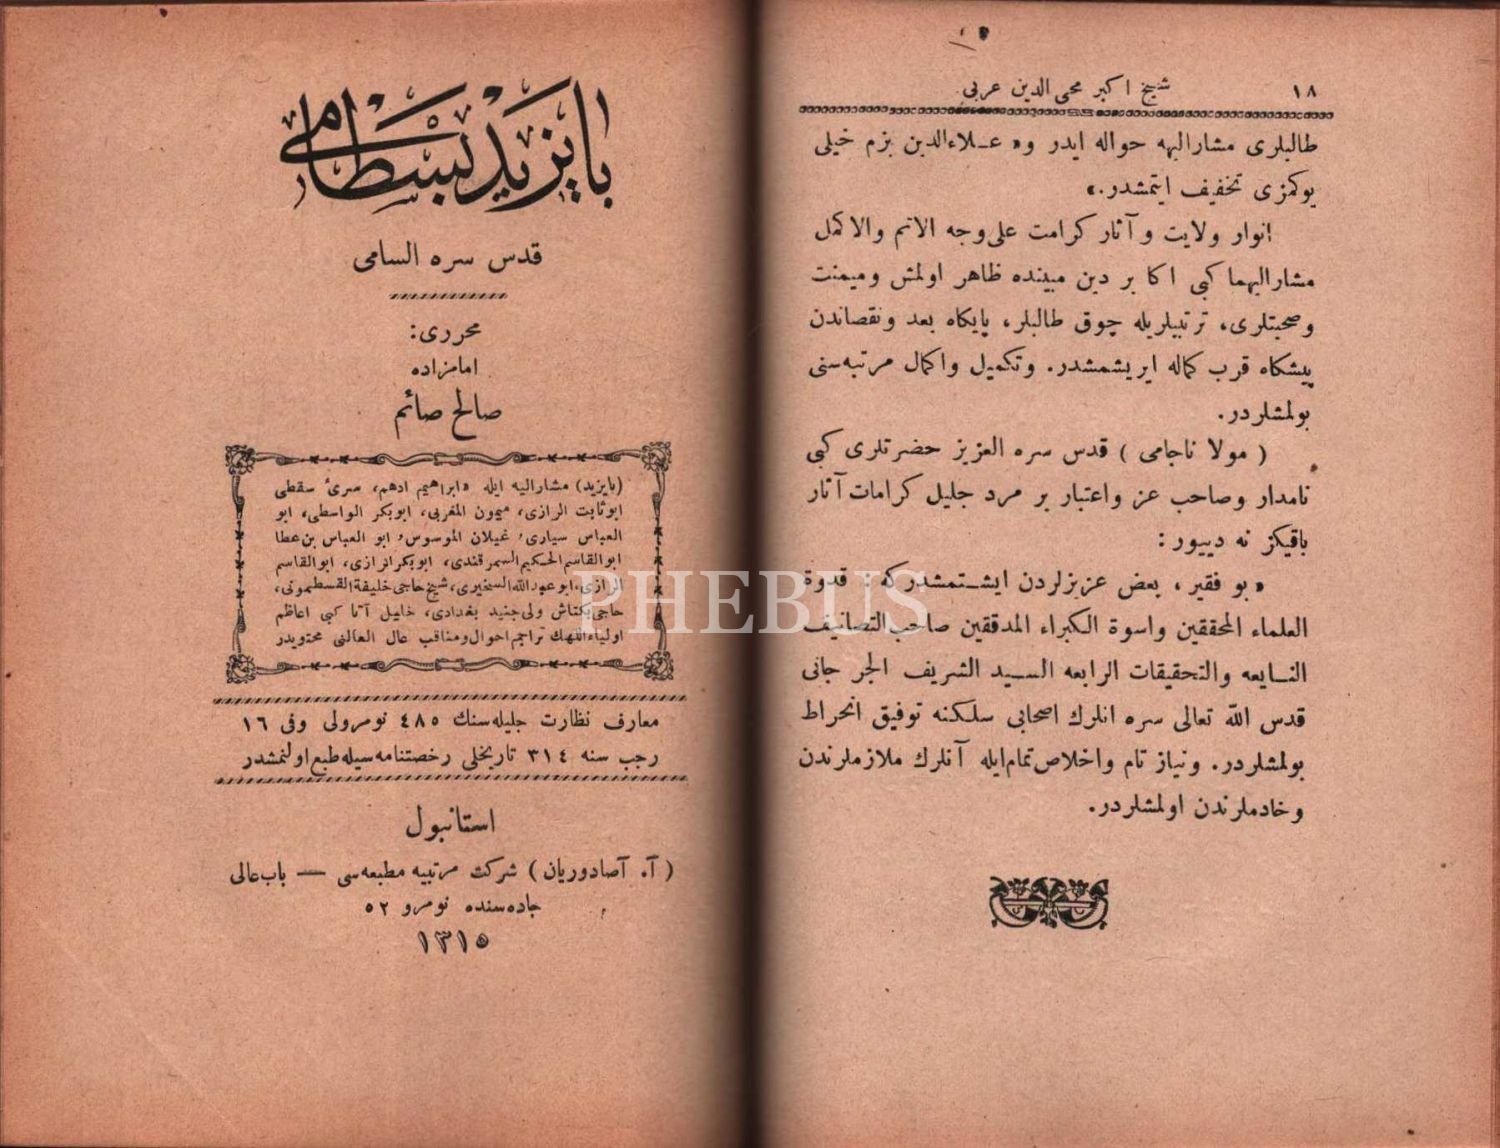 ١٨
شيخ اكبر محى الدين عربى
طالبلرى مشاراليهه حواله ايدر و« عــلاءالدين بزم خيلى
يوكمزى تخفيف ايتمشدر.»
انوار ولايت و آثار كرامت على وجه الاتم والاكمل
مشاراليهما كبى اكابر دين مبينده ظاهر اولمش وميمنت
وصحبتلرى، ترتيبلريله چوق طالبلر، پايكاه بعد ونقصاندن
پيشكاه قرب كماله ايريشمشدر. وتكميل واكمال مرتبه‌سنى
بولمشلردر.
( مولا ناجامى ) قدس سره العزيز حضرتلرى كبى
نامدار وصاحب عز واعتبار بر مرد جليل كرامات آثار
باقيكز نه دييور :
« بو فقير ، بعض عزيزلردن ايشــتمشدركه : قدوة
العلماء المحققين واسوة الكبراء المدققين صاحب‌التصانيف
النــايعه والتحقيقات الرايعه الســيد الشريف الجر جانى
قدس الله تعالى سره انلرك اصحابى سلكنه توفيق انخراط
بولمشلردر. ونياز تام واخلاص تمام‌ايله آنلرك ملازملرندن
وخادملرندن اولمشلردر.
بايزيد بسطامى
قدس سره السامى
محررى:
امامزاده
صالح صائم
(بايزيد) مشاراليه ايله «ابراهيم ادهم، سرىء سقطى
ابوثابت الرازى، ميمون المغربى، ابوبكر الواسطى، ابو
العباس سيارى، غيلان الموسوس، ابو العباس بن‌عطا
ابوالقاسم‌الحكيم‌السمرقندى، ابوبكرالرازى، ابوالقاسم
الرازى، ابوعبدالله السنجيرى، شيخ‌حاجى‌خليفة‌القسطمونى،
حاجى‌بكتاش ولى‌جنيد بغدادى، خليل آتا كبى اعاظم
اولياءاللهك تراجم‌احوال‌ومناقب عال العالنى محتويدر
معارف نظارت جليله‌سنك ٤٨٥ نومرولى وفى ١٦
رجب سنه ٣١٤ تاريخلى رخصتنامه‌سيله‌طبع‌اولنمشدر
استانبول
( آ. آصادوريان ) شركت مرتبيه مطبعه‌سى — باب‌عالى
جاده‌سنده نومرو ٥٢
١٣١٥
PHEBUS